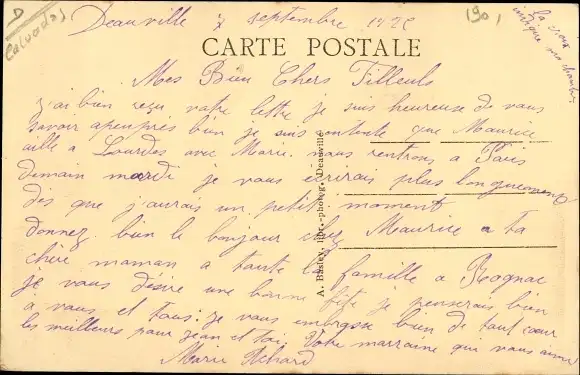 D
Calvados
Deauville 7 septembre 1925
1901
La croix
indique ma chambre
CARTE POSTALE
Mes Bien Chers Filleuls
j'ai bien reçu votre lettre je suis heureuse de vous
savoir apeuprès bien je suis contente que Maurice
aille a Lourdes avec Marie. nous rentrons a Paris
demain mardi je vous écrirais plus longuement
dès que j'aurais un petit moment
donnez bien le bonjour chez Maurice a ta
chère maman a toute la famille a Rognac
je vous désire une bonne fête je penserais bien
a vous et tous. je vous embrasse bien de tout cœur
les meilleurs pour jean et toi. Votre marraine qui vous aime
Marie Achard
A. Breley, libr.-photog., Deauville